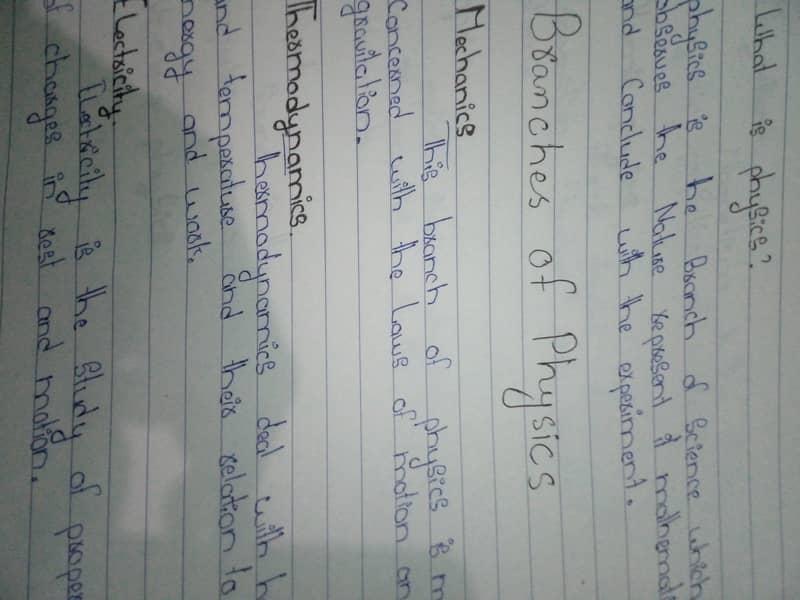 What is physics?
physics is the Branch of Science which
observes the Nature represent it mathemati
and Conclude with the experiment.
Branches of Physics
Mechanics
This branch of physics is m
Concerned with the Laws of motion an
gravitation.
Thermodynamics.
thermodynamics deal with h
and temperature and their relation to
nergy and work.
Electricity.
Electricity is the study of proper
of charges in rest and motion.